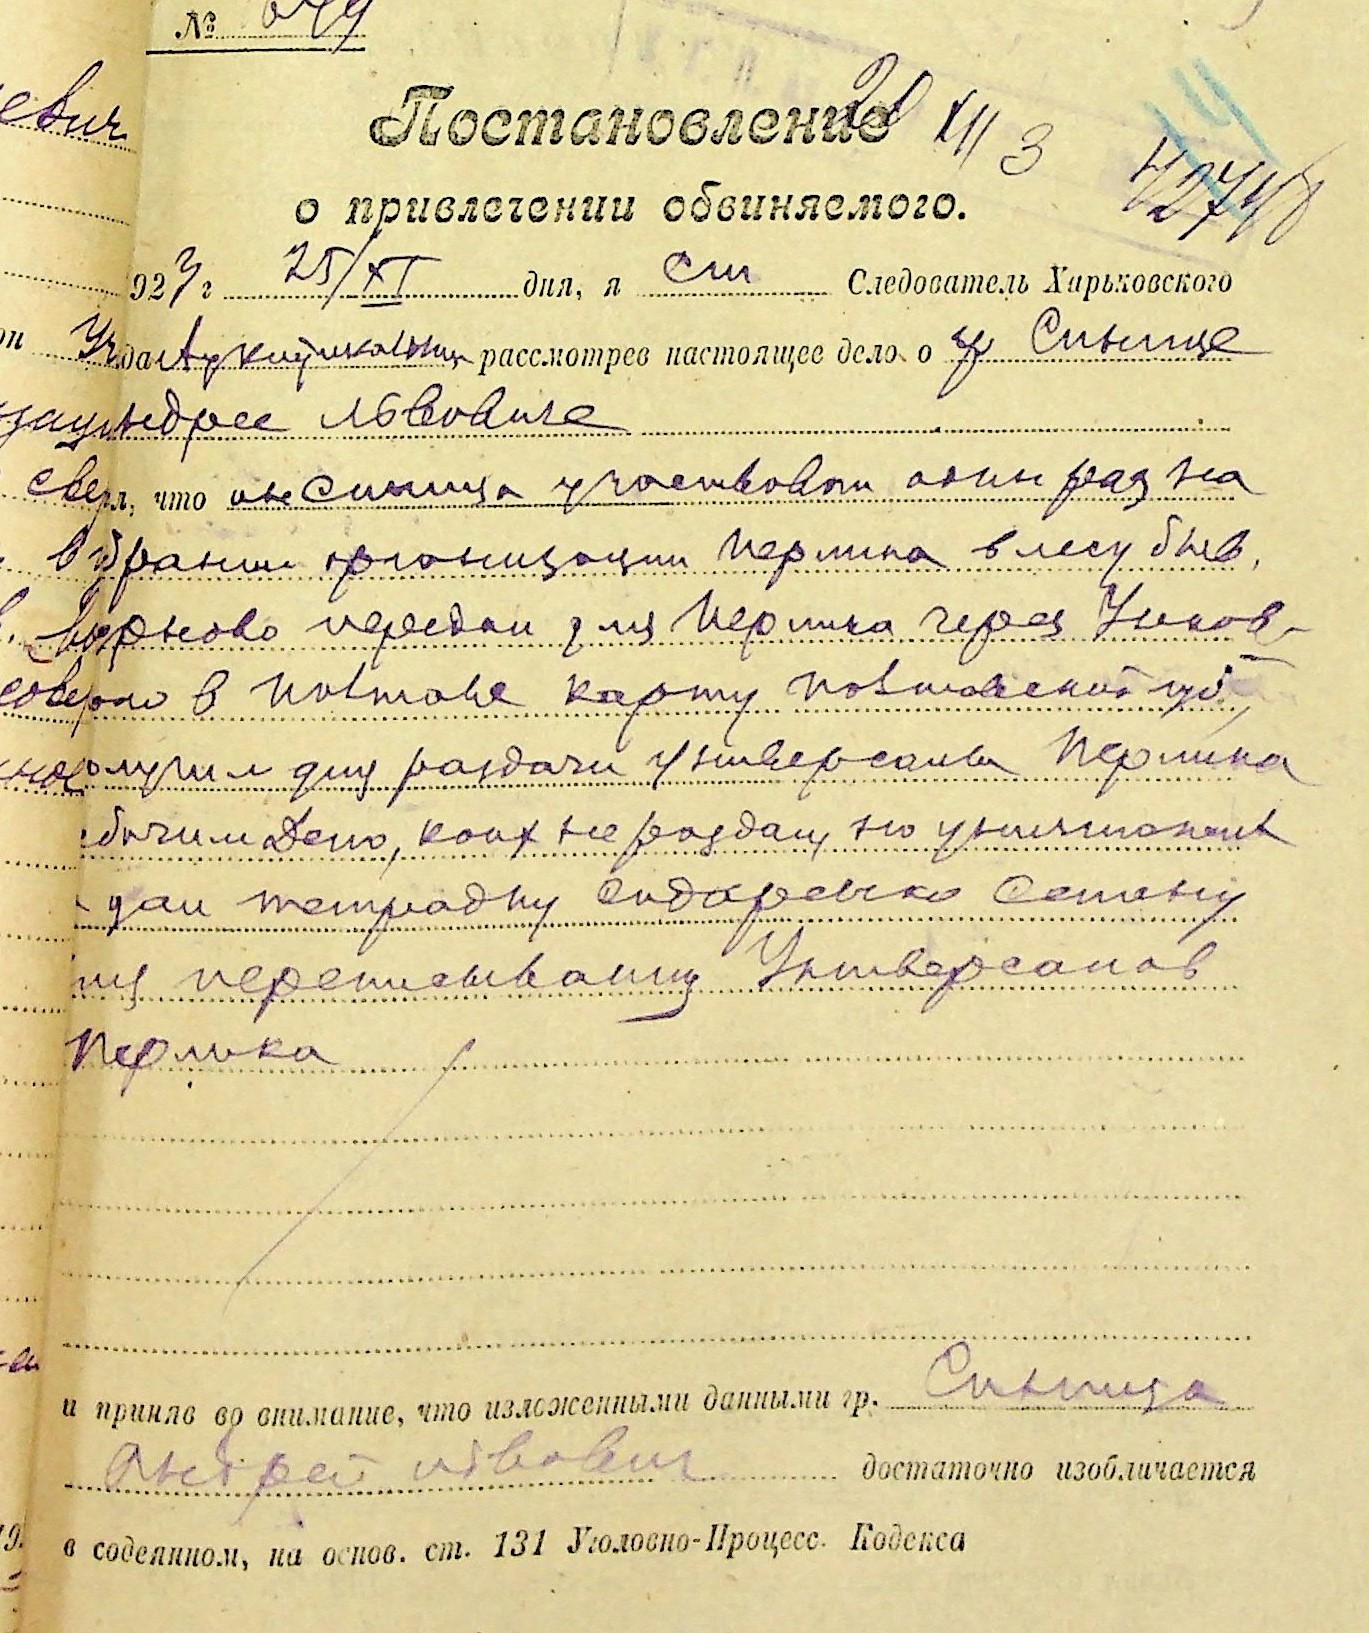 № 649
Постановление
о привлечении обвиняемого.
20 XII 3
923 г 25/XI дня, я ст Следователь Харьковского
рассмотрев настоящее дело о гр Синице
Андрее Львовиче
, что он Синица участвовал один раз на
собрании организации Перлика в лесу быв.
передал для Перлика через
в Полтаве карту Полтавской губ.
получил для раздачи универсалы Перлика
Депо, коих не раздал, но уничтожил
дал тетрадку Сидоренко Семену
для переписывания Универсалов
Перлика
и приняв во внимание, что изложенными данными гр. Синица
Андрей Львович достаточно изобличается
в содеянном, на основ. ст. 131 Уголовно-Процесс. Кодекса